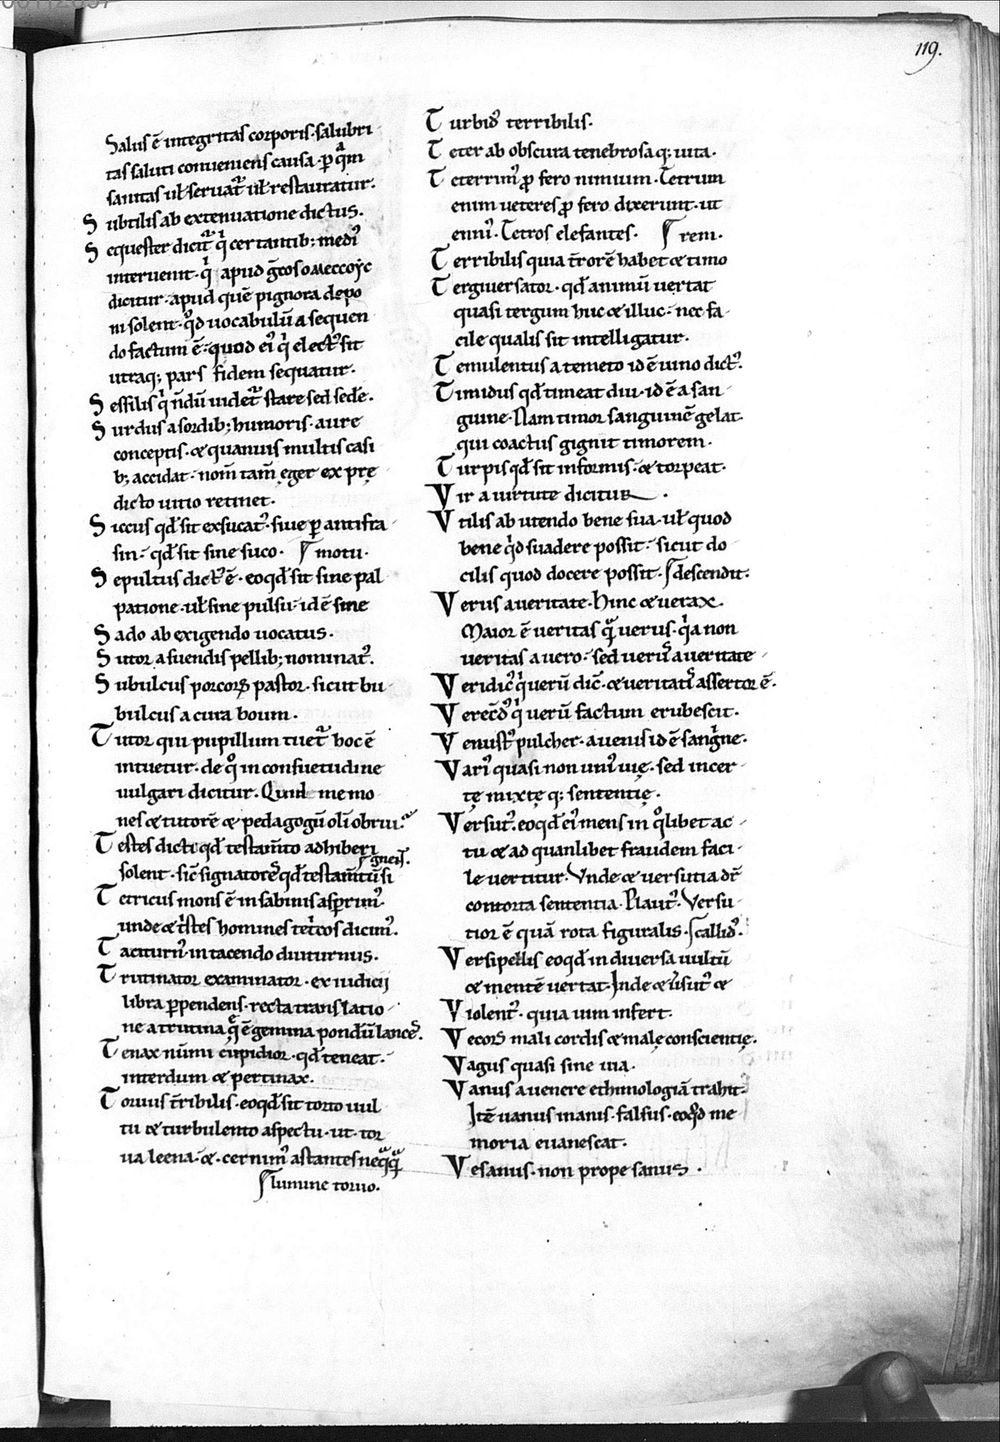 119.
Salus ē integritas corporis. salubri
tas saluti conueniens causa. ꝑ quā
sanitas uł seruat᷑ uł restauratur.
Subtilis ab extenuatione dictus.
Sequester dicit᷑ qⁱ certantib; mediꝰ
interuenit. qⁱ apud g̅cos o ΜЄCCOYC
dicitur. apud quē pignora depo
ni solent. qd̓ uocabulū a sequen
do factum ē. quod eiꝰ qⁱ electꝰ sit
utraq; pars fidem sequatur.
Sessilis qⁱ n̄ dū uidet᷑ stare sed sedē.
Surdus a sordib; humoris. aure
conceptis. & quamuis multis casi
b; accidat. nom̄ tam̄ eger ex prę
dicto uitio retinet.
Siccus qd̓ sit exsucatꝰ. siue ꝑ antifra
sin. qd̓ sit sine suco. motu.
Sepultus dictꝰ ē. eo qd̓ sit sine pal
patione. uł sine pulsu. id ē sine
Sado ab exigendo uocatus.
Sutor a suendis pellib; nominat᷑.
Subulcus porcoꝝ pastor. sicut bu
bulcus a cura boum.
Tutor qui pupillum tuet᷑ hoc ē
intuetur. de qͦ in consuetudine
uulgari dicitur. Quid me mo
nes & tutorē & pedagogū oli obrui.
Testes dicti qd̓ testam̄to adhiberi
solent. sic̄ signatores qd̓ testam̄tū si
gnent.
Tetricus mons ē in sabinis asperrimꝰ.
unde & tⁱstes homines tetⁱcos dicimꝰ.
Taciturnꝰ. in tacendo diuturnus.
Trutinator examinator. ex iudicii
libra ꝑpendens. recta translatio
ne a trutina quę ē gemina pondeꝝ lance.
Tenax nūmi cupidior. qd̓ teneat.
interdum & pertinax.
Toruus t̄ribilis. eo qd̓ sit torto uul
tu & turbulento aspectu. ut. tor
ua leena. &. cernimꝰ astantes neqͣqͣ
lumine toruo.
Turbidꝰ terribilis.
Teter ab obscura tenebrosa q; uita.
Teterrimꝰ ꝓ fero nimium. Tetrum
enim ueteres ꝓ fero dixerunt. ut
enniꝰ. Tetros elefantes. rem.
Terribilis quia t̄rorē habet & timo
Tergiuersator. qd̓ animū uertat
quasi tergum huc & illuc. nec fa
cile qualis sit intelligatur.
Temulentus a temeto id ē uino dictꝰ.
Timidus qd̓ timeat diu. id ē a san
guine. Nam timor sanguinē gelat.
qui coactus gignit timorem.
Turpis qd̓ sit informis. & torpeat.
Vir a uirtute dicitur.
Vtilis ab utendo bene sua. uł quod
bene qⁱd suadere possit. sicut do
cilis quod docere possit. descendit.
Verus a ueritate. Hinc & uerax.
Maior ē ueritas quā uerus. qⁱa non
ueritas a uero. sed uerus a ueritate
Veridicꝰ qⁱ uerū dic̄. & ueritatis assertor ē.
Verecūdꝰ qⁱ uerū factum erubescit.
Venustꝰ pulcher. a uenis id ē sangⁱne.
Variꝰ quasi non uniꝰ uię. sed incer
tę mixtę q; sententię.
Versutꝰ. eo qd̓ eiꝰ mens in qͦlibet ac
tu & ad quamlibet fraudem faci
le uertitur. Vnde & uersutia dr̄
contorta sententia. Plautꝰ. Versu
tior ē quā rota figuralis. callidꝰ.
Versipellis eo qd̓ in diuersa uultū
& mentē uertat. Inde & uersutꝰ &
Violentꝰ. quia uim infert.
Vecors mali cordis & malę conscientię.
Vagus quasi sine uia.
Vanus a uenere ethimologiā trahit.
Itē uanus inanis. falsus. eo qd̓ me
moria euanescat.
Vesanus. non prope sanus.